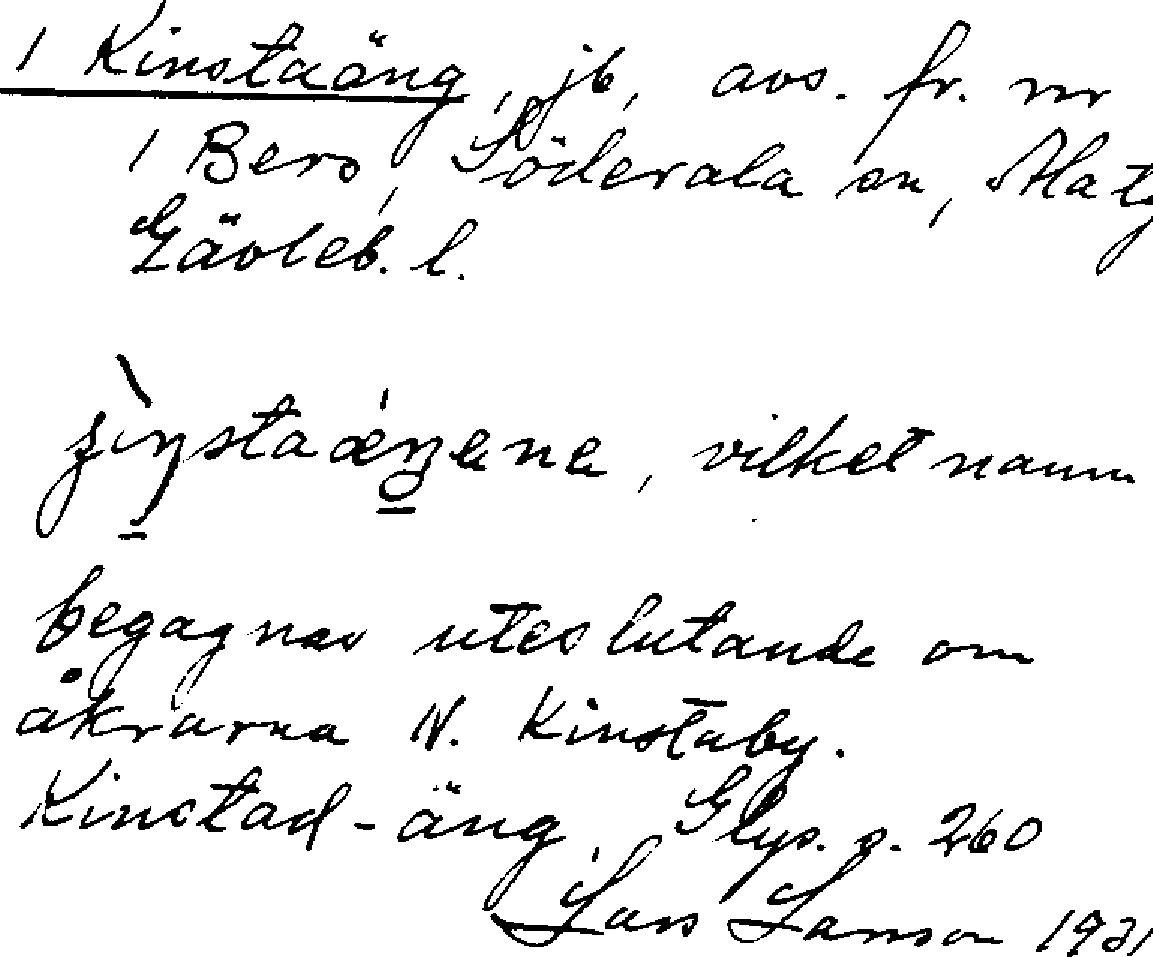 1 Kinstaäng, jb, avs. fr. nr
1 Berg, Söderala sn,
Gävleb. l.
vilket namn
begagnas uteslutande om
åkrarna N. Kinstaby.
Kinstad-äng, Glys. s. 260
Lars Larsson 1931